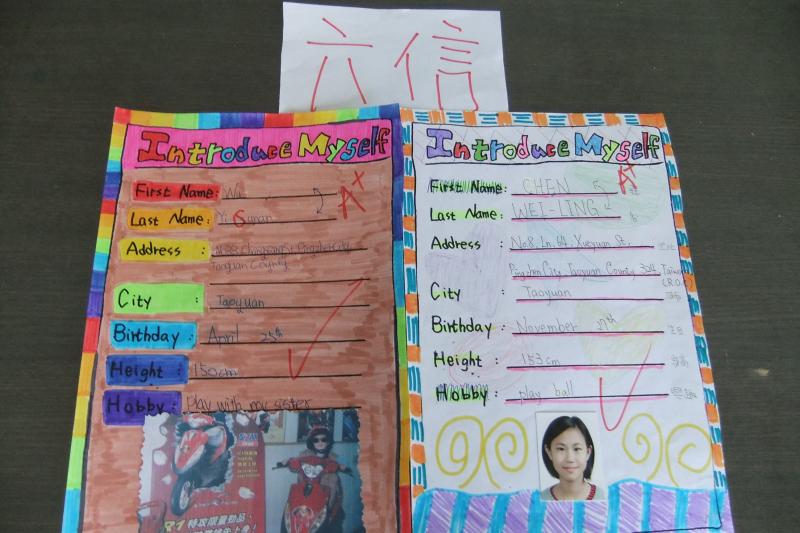 六信
Introduce Myself
First Name: Wu
A+
Last Name: Yi Guan
Address :
Taoyuan County
City : Taoyuan
Birthday : April 25th
Height : 150cm
Hobby : Play with my sister
R1 特攻限量勁品
Introduce Myself
First Name: CHEN
A+
Last Name: WEI-LING
Address : No.8, Ln. 64, Xueyuan St.,
Pingzhen City, Taoyuan County 324, Taiwan
(R.O.C)
City : Taoyuan
Birthday : November 17th
Height : 153cm
Hobby : play ball